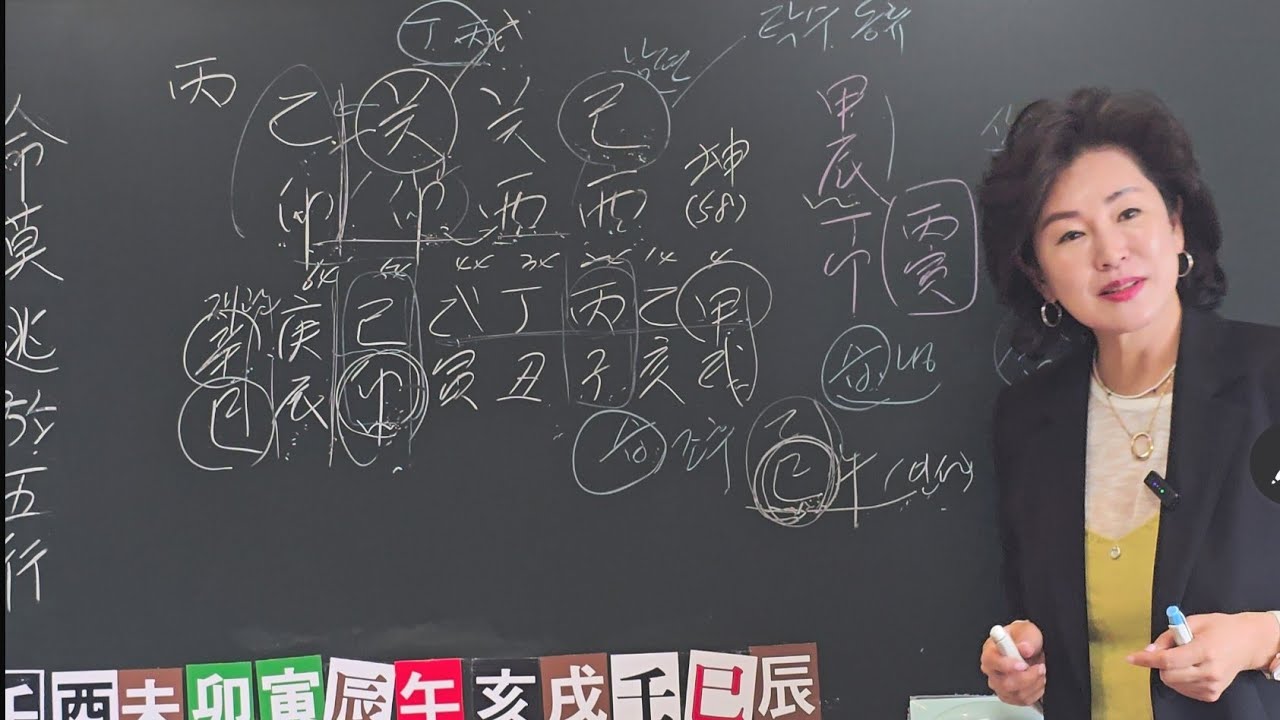 丙
乙 癸 癸 己
卯 卯 酉 酉
남편
坤
(58)
6x 5x 4x 3x 2x 1x 4
辛 庚 己 戊 丁 丙 乙 甲
巳 辰 卯 寅 丑 子 亥 戌
甲
辰
丁
卯
丙
寅
乙
巳 午
命莫逃於五行
酉 未 卯 寅 辰 午 亥 戌 壬 巳 辰